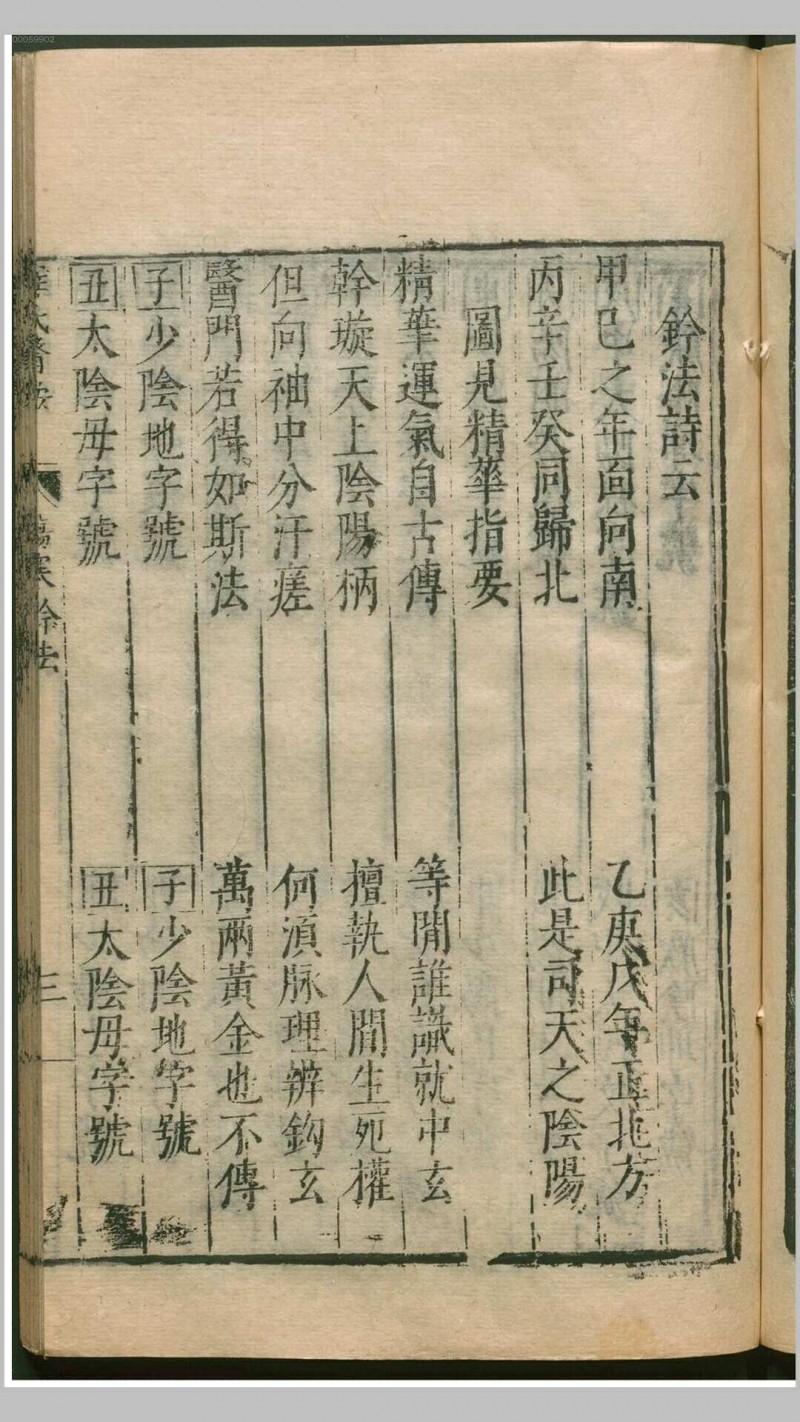 00059902
鈐法詩云
甲己之年面向南 乙庚戊年正北方
丙辛壬癸同歸北 此是司天之陰陽
圖見精華指要
精華運氣自古傳 等閒誰識就中玄
幹璇天上陰陽柄 擅執人間生死權
但向袖中分汗瘥 何湏脉理辨鈎玄
醫門若得如斯法 萬兩黃金也不傳
子少陰地字號 子少陰地字號
丑太陰毋字號 丑太陰毋字號
薛氏醫按 傷寒鈐法 三